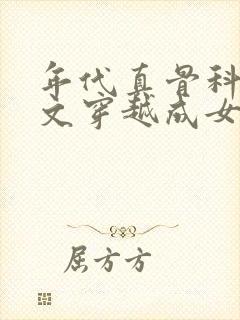 年代真骨科
文穿越成女
屈方方